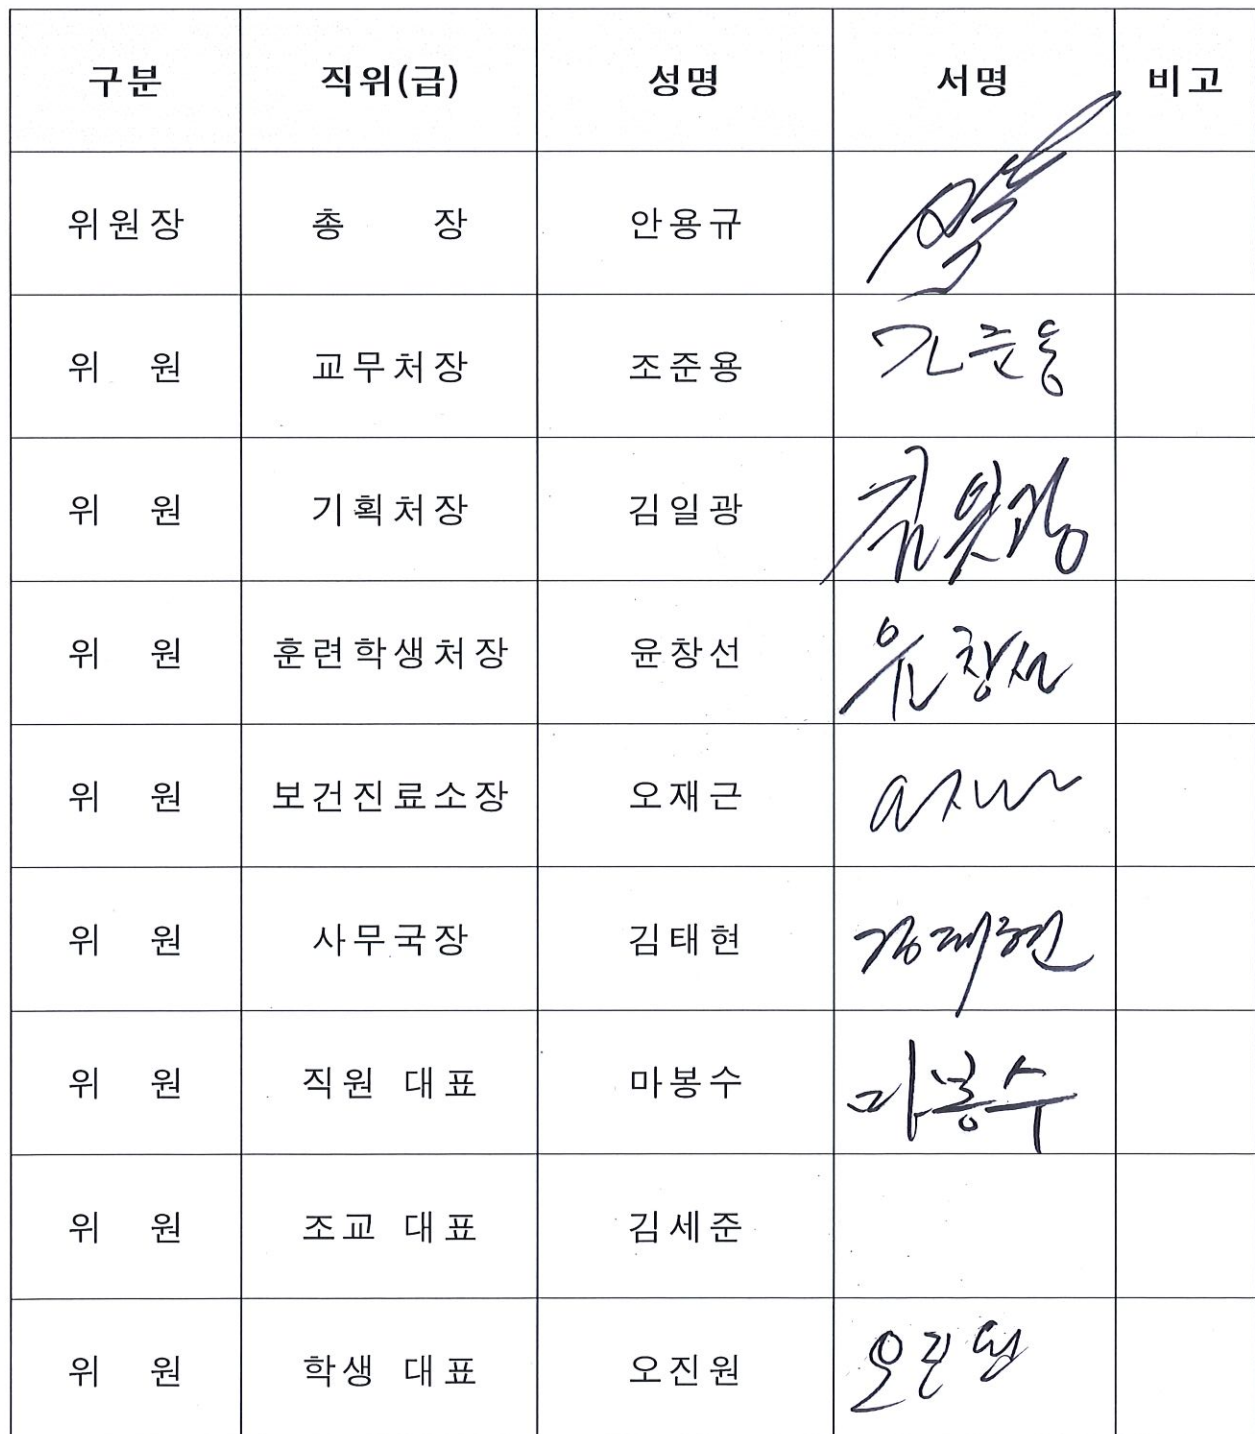 구분 직위(급) 성명 서명 비고
위원장 총 장 안용규
위 원 교무처장 조준용 조준용
위 원 기획처장 김일광 김일광
위 원 훈련학생처장 윤창선 윤창선
위 원 보건진료소장 오재근
위 원 사무국장 김태현 김태현
위 원 직원 대표 마봉수 마봉수
위 원 조교 대표 김세준
위 원 학생 대표 오진원 오진원